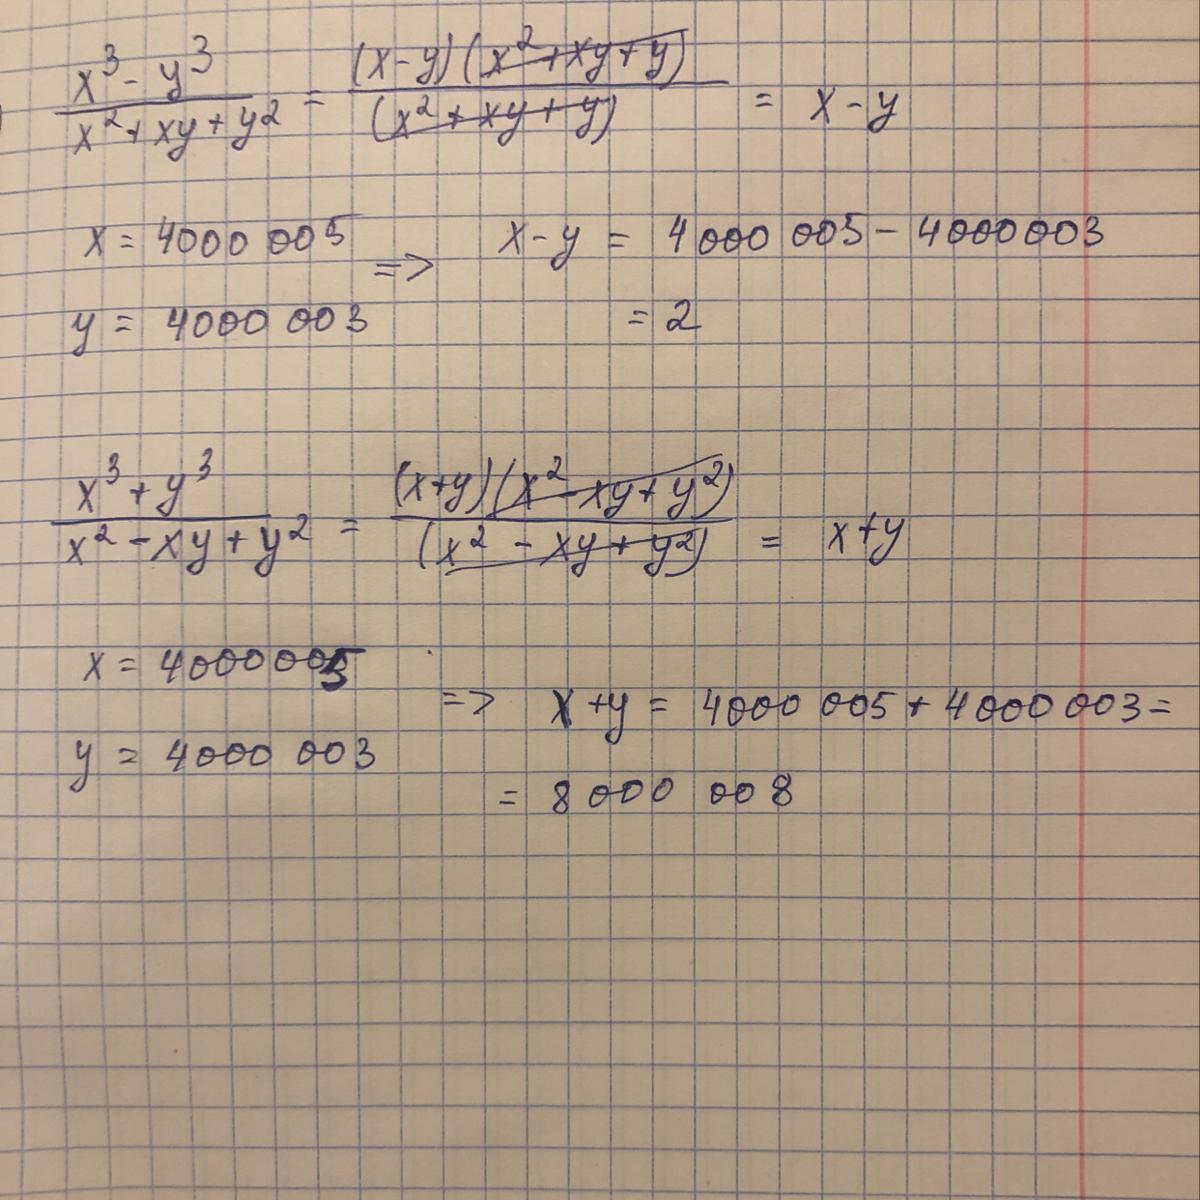 x³ - y³ / x² + xy + y² = (x - y)(x² + xy + y) / (x² + xy + y) = x - y
x = 4000 005 => x - y = 4000 005 - 4000003
y = 4000 003 = 2
x³ + y³ / x² - xy + y² = (x+y)(x² - xy + y²) / (x² - xy + y²) = x+y
x = 4000005
=> x + y = 4000 005 + 4000 003 =
y = 4000 003
= 8000 008